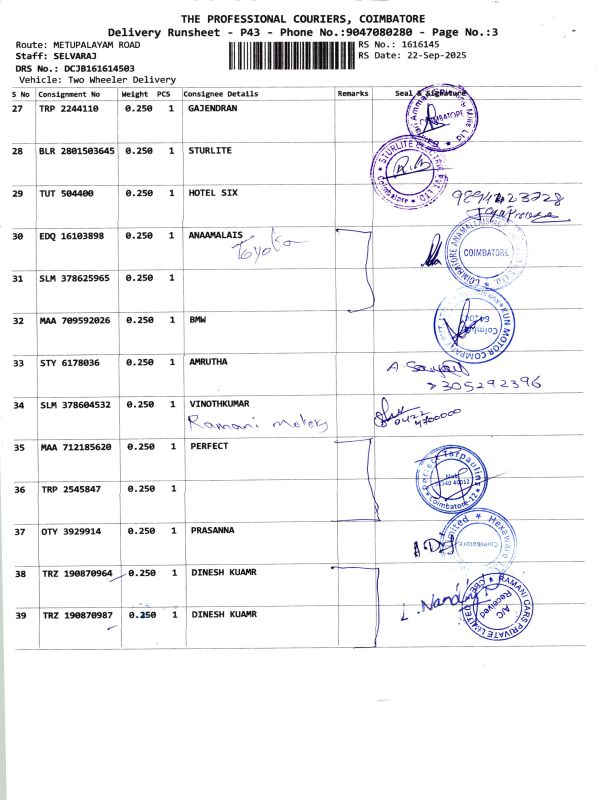 THE PROFESSIONAL COURIERS, COIMBATORE
Delivery Runsheet - P43 - Phone No.:9047080280 - Page No.:3
Route: METUPALAYAM ROAD RS No.: 1616145
Staff: SELVARAJ RS Date: 22-Sep-2025
DRS No.: DCJB161614503
Vehicle: Two Wheeler Delivery
S No Consignment No Weight PCS Consignee Details Remarks Seal & Signature
27 TRP 2244110 0.250 1 GAJENDRAN
COIMBATORE
28 BLR 2801503645 0.250 1 STURLITE
STURLITE
Coimbatore
29 TUT 504400 0.250 1 HOTEL SIX
30 EDQ 16103898 0.250 1 ANAAMALAIS
Toyota
COIMBATORE
31 SLM 378625965 0.250 1
32 MAA 709592026 0.250 1 BMW
KUN MOTOR COMPANY
33 STY 6178036 0.250 1 AMRUTHA
305292396
34 SLM 378604532 0.250 1 VINOTHKUMAR
Ramani Motors
0422
4700000
35 MAA 712185620 0.250 1 PERFECT
Perfect Tarpaulin
Coimbatore-12
36 TRP 2545847 0.250 1
37 OTY 3929914 0.250 1 PRASANNA
Hexaware
Coimbatore
38 TRZ 190870964 0.250 1 DINESH KUAMR
39 TRZ 190870987 0.250 1 DINESH KUAMR
RAMANI CARS PRIVATE LIMITED
A/C
Received